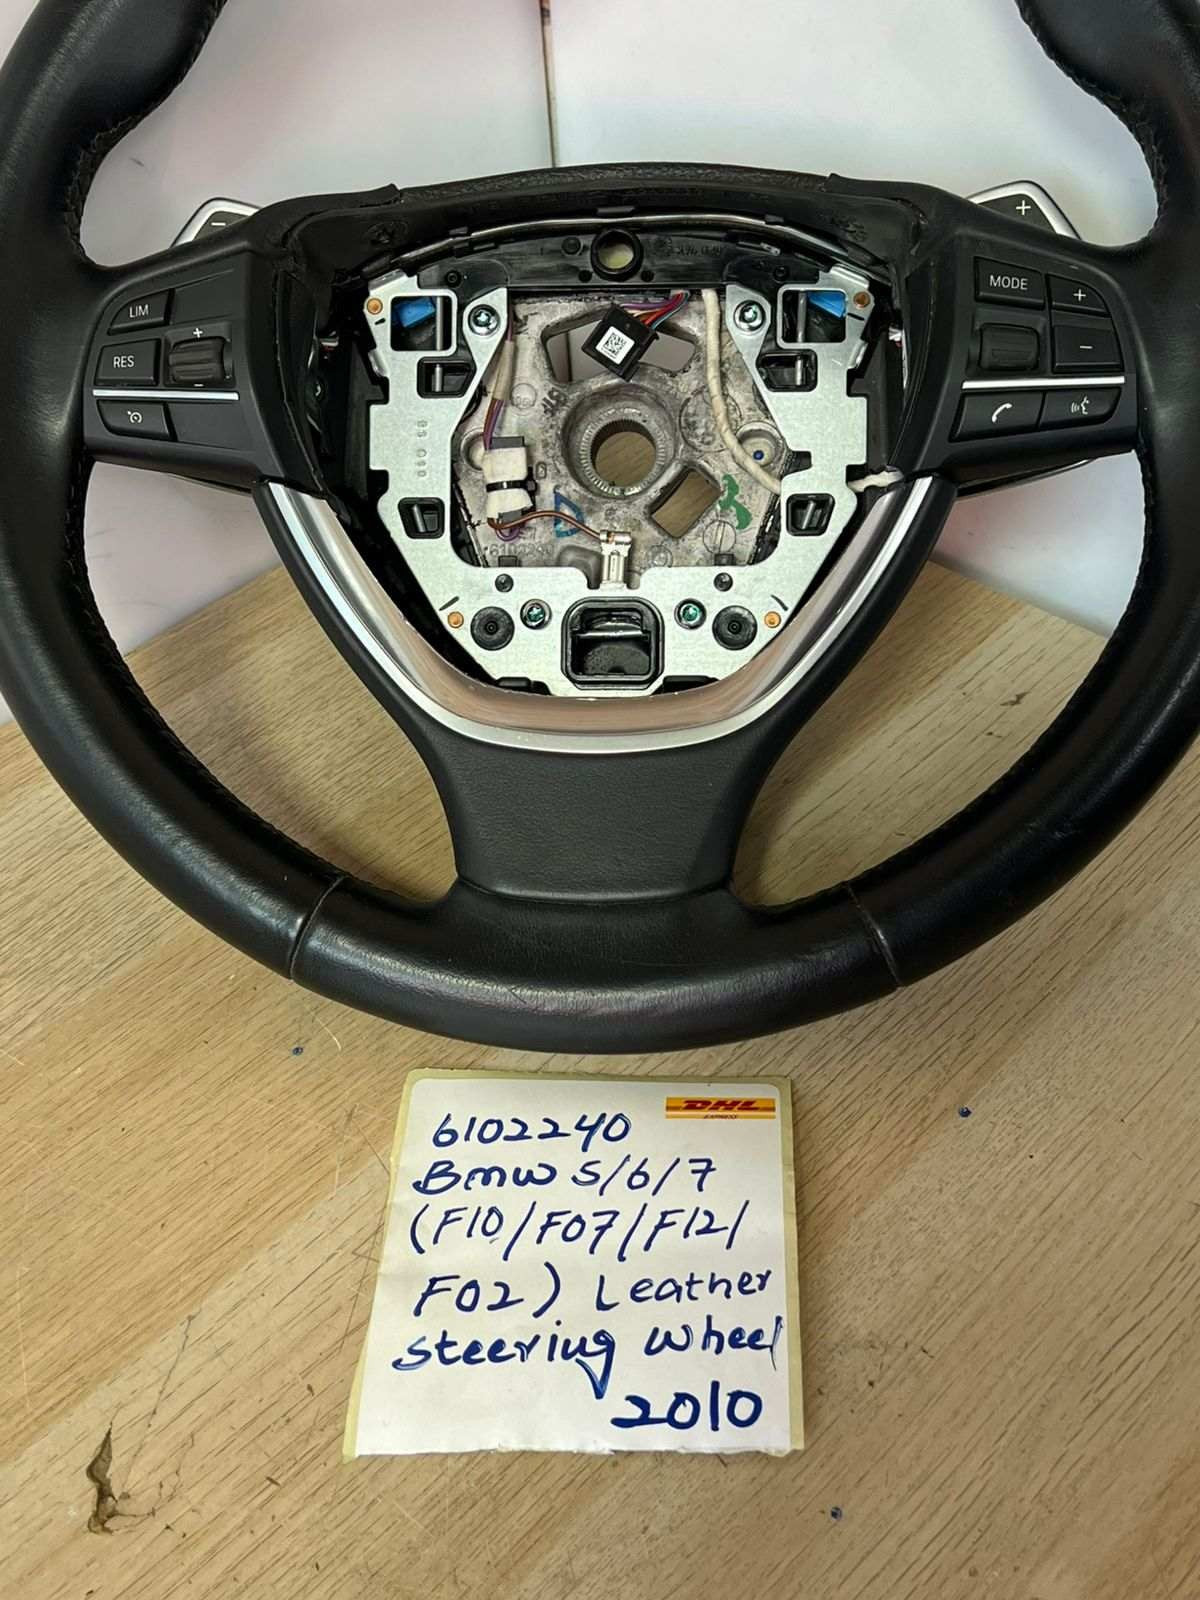 − +
LIM
MODE
+
+
RES
−
−
6102240
DHL
EXPRESS
Bmw 5/6/7
(F10/F07/F12/
F02) Leather
steering wheel
2010